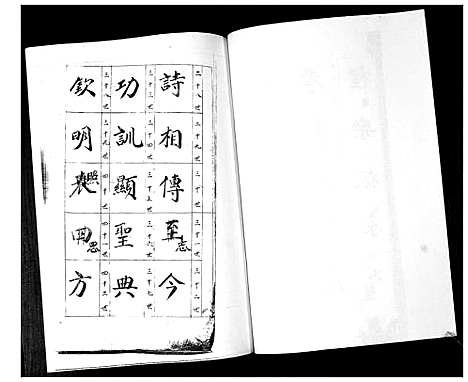 詩 二十八世
相 二十九世
傳 三十世
至志 三十一世
今 三十二世
功 三十三世
訓 三十四世
顯 三十五世
聖 三十六世
典 三十七世
欽 三十八世
明 三十九世
照 四十世
思 四十一世
方 四十二世